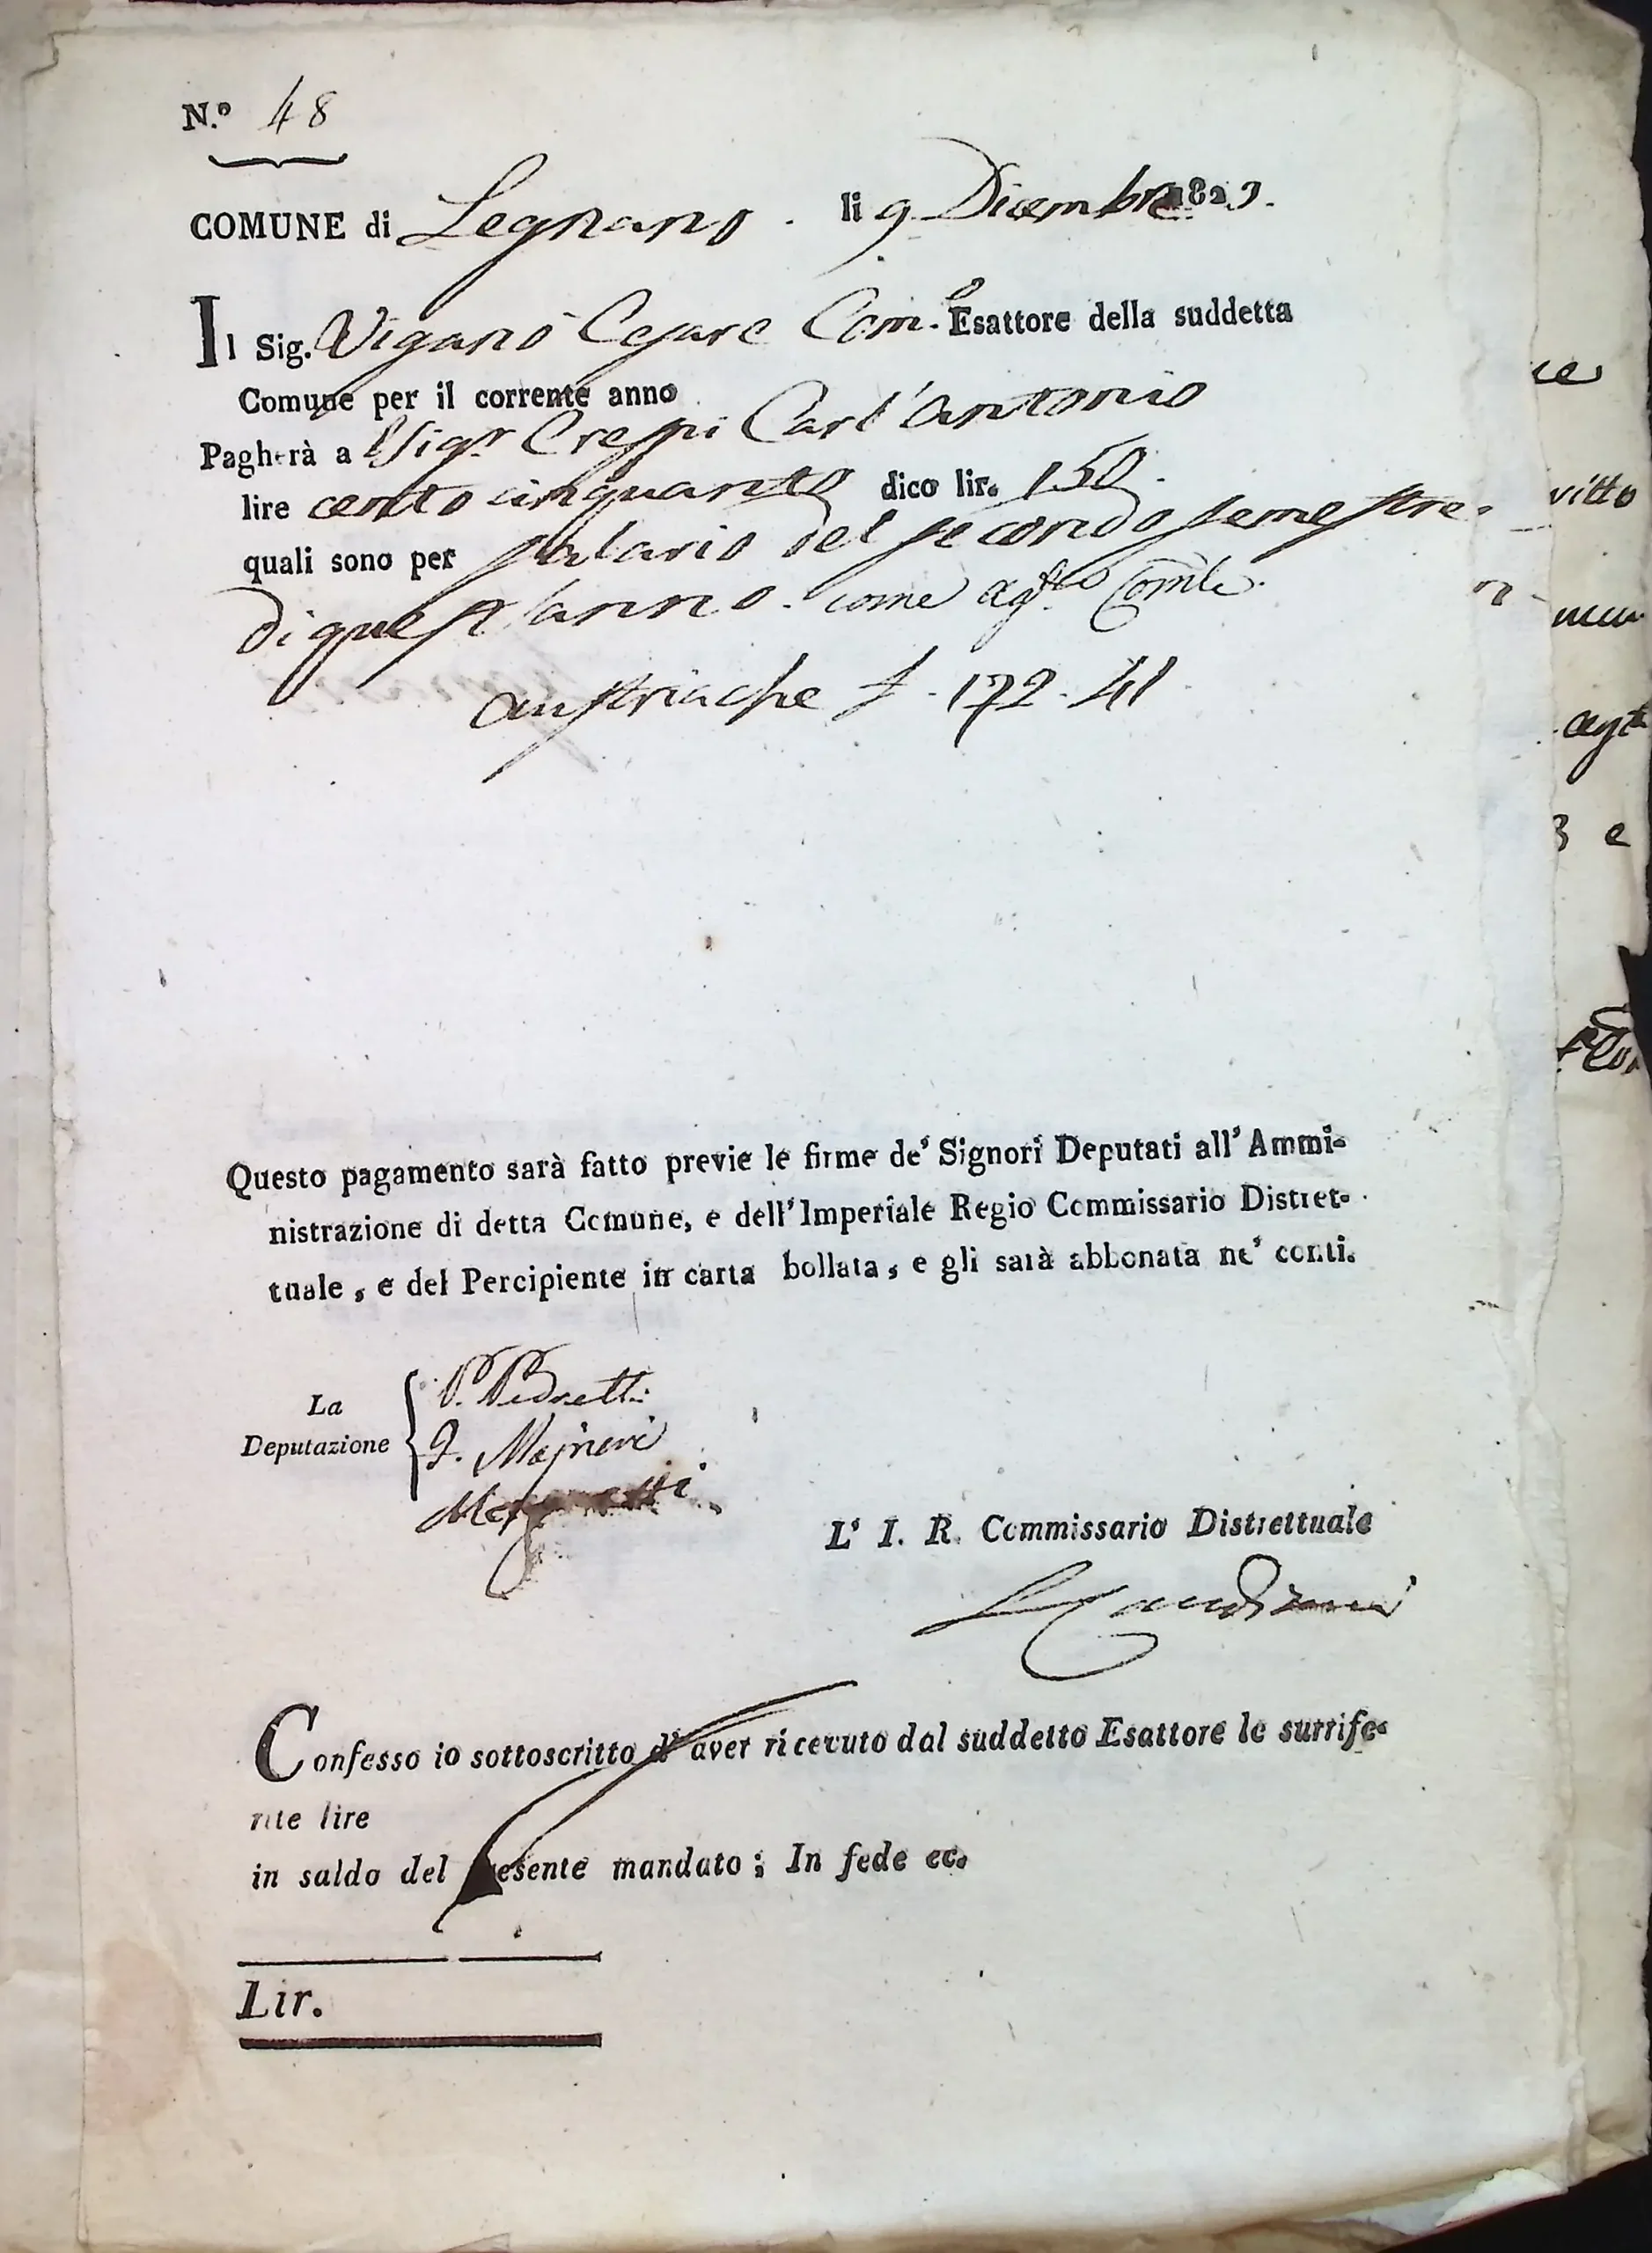 N.º 48
COMUNE di Legnano. li 9 Dicembre 1823.
Il Sig. Viganò Cesare Com.e Esattore della suddetta
Comune per il corrente anno
Pagherà al Sigr Crespi Carl'Antonio
lire cento cinquanta dico lir. 150.
quali sono per salario del secondo semestre
di quest'anno. come ag.te Com.le
austriache £. 172. 41
Questo pagamento sarà fatto previe le firme de' Signori Deputati all' Ammi-
nistrazione di detta Comune, e dell' Imperiale Regio Commissario Distret-
tuale, e del Percipiente in carta bollata, e gli sarà abbonata ne' conti.
La
Deputazione
P. Pedretti
Majneri
L' I. R. Commissario Distrettuale
Confesso io sottoscritto d' aver ricevuto dal suddetto Esattore le surrife-
rite lire
in saldo del presente mandato; In fede ec.
Lir.